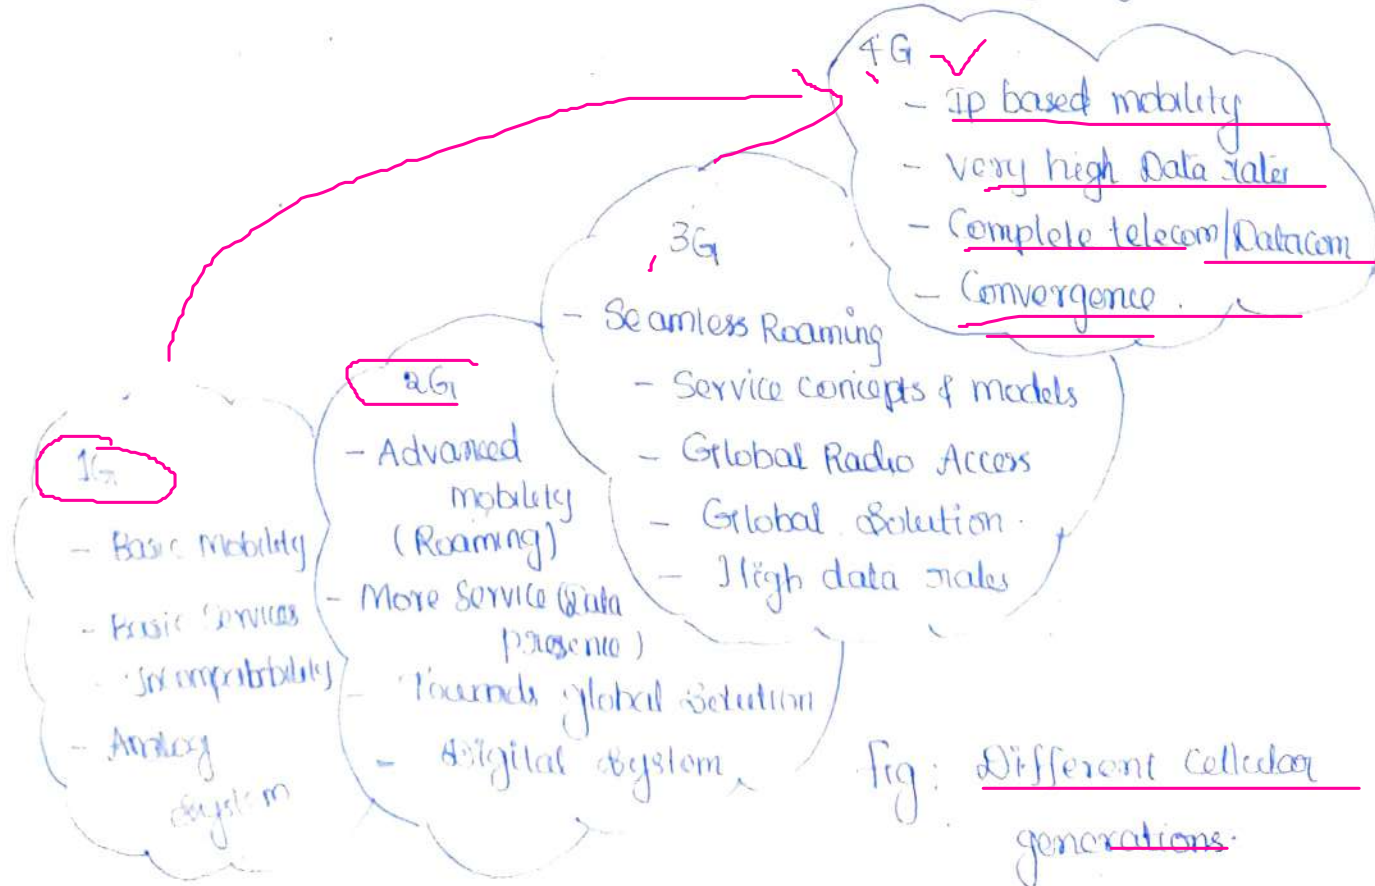 4G
- Ip based mobility
- Very high Data rates
- Complete telecom/Datacom
- Convergence.
3G
- Seamless Roaming
- Service concepts & models
- Global Radio Access
- Global Solution.
- High data rates
2G
- Advanced
mobility
(Roaming)
- More Service (Data
presence)
- Towards global solution
- Digital System
1G
- Basic Mobility
- Basic Services
- Incompatibility
- Analog
System
Fig: Different Cellular
generations.